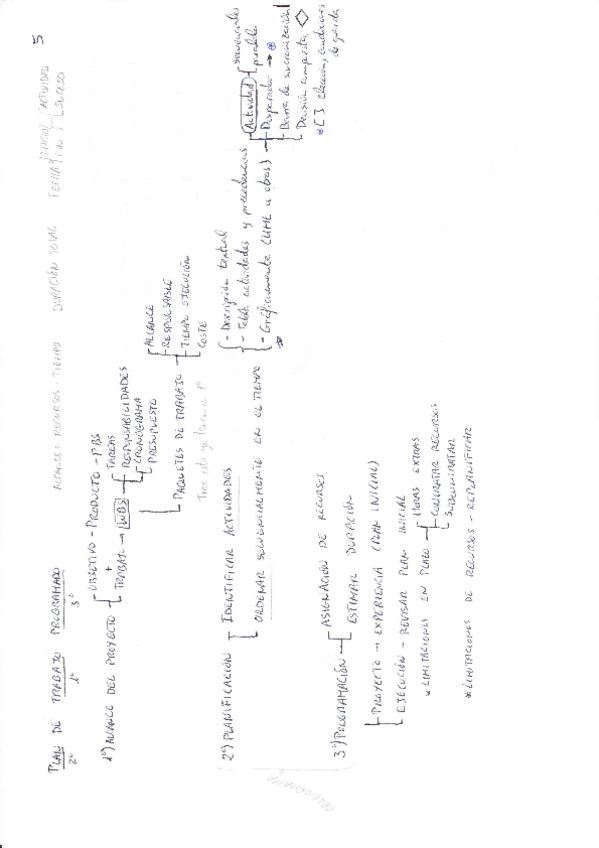 5
PLAN DE TRABAJO PROGRAMADO
2º 1º 3º
ALCANCE - RECURSOS - TIEMPO DURACIÓN TOTAL FECHA INICIO FIN ACTIVIDAD SUCESO
1º) ALCANCE DEL PROYECTO
- OBJETIVO - PRODUCTO - PBS
+
TRABAJO → WBS
TAREAS
RESPONSABILIDADES
CRONOGRAMA
PRESUPUESTO
PAQUETES DE TRABAJO
ALCANCE
RESPONSABLE
TIEMPO EJECUCIÓN
COSTE
2º) PLANIFICACIÓN
IDENTIFICAR ACTIVIDADES
ORDENAR SECUENCIALMENTE EN EL TIEMPO
- Descripción textual
- Tabla actividades y precedencias
- Gráficamente (UML u otras)
Actividad
secuenciales
paralelo
- Disparador →
- Barra de sincronización
- Decisión compuesta
[ ] elección, condiciones de guarda
3º) PROGRAMACIÓN
ASIGNACIÓN DE RECURSOS
ESTIMAR DURACIÓN
PROYECTO → EXPERIENCIA (PLAN INICIAL)
EJECUCIÓN - REVISAR PLAN INICIAL
* LIMITACIONES EN PLAZO
HORAS EXTRAS
CONTRATAR RECURSOS
SUBCONTRATAR
* LIMITACIONES DE RECURSOS - REPLANIFICAR